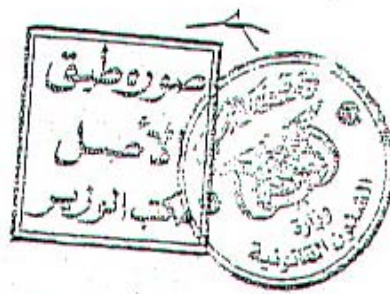 صوره طبق
الأصل
مكتب الوزير
وزارة
الشئون القانونية